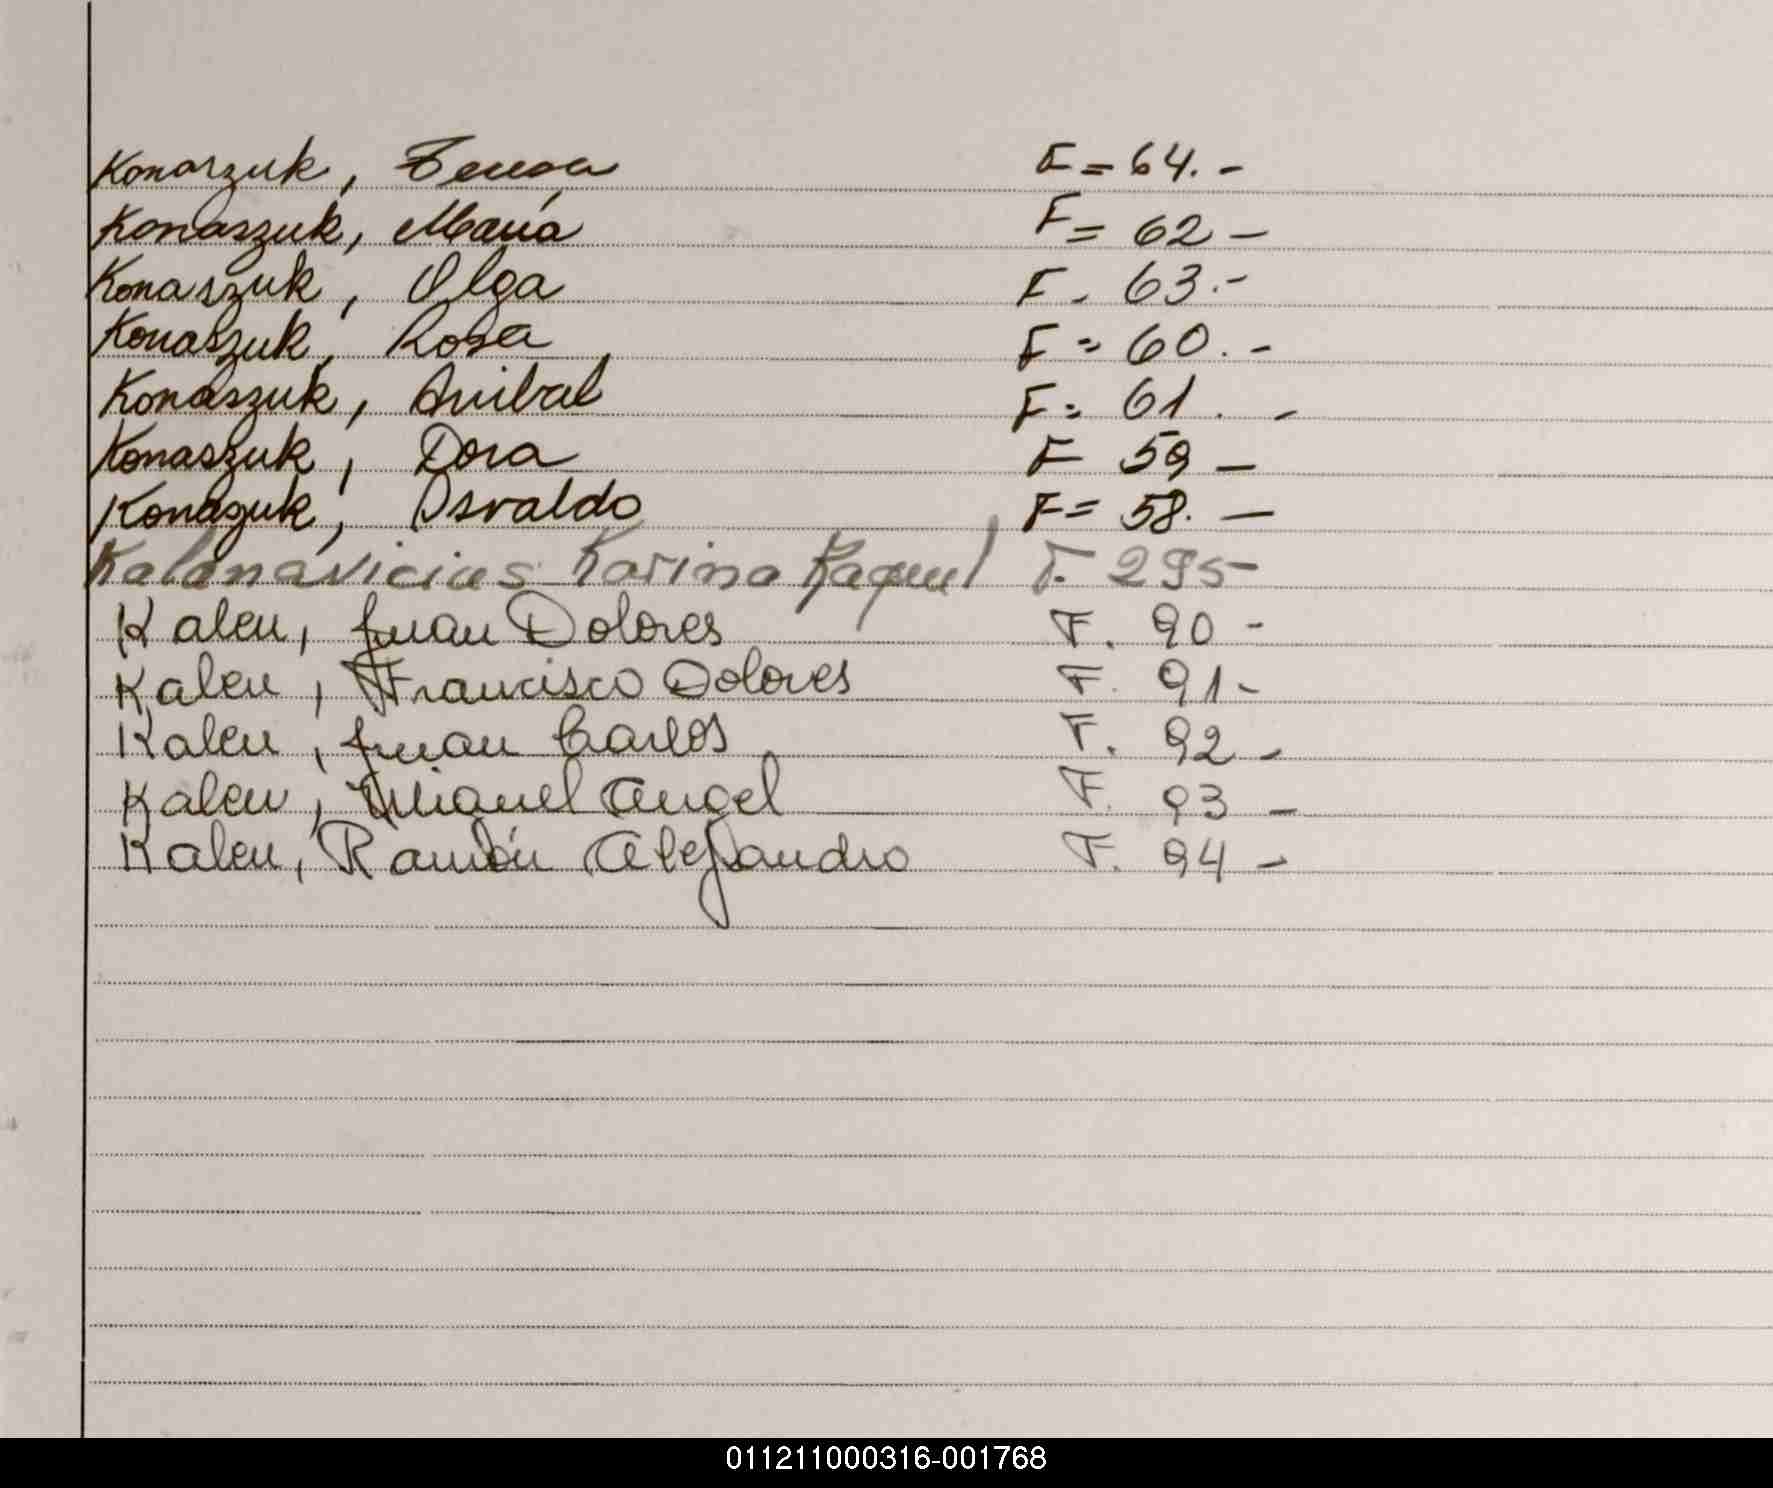 Konaszuk, Teresa F = 64. -
Konaszuk, María F = 62 -
Konaszuk, Olga F - 63.-
Konaszuk, Rosa F = 60. -
Konaszuk, Anibal F = 61. -
Konaszuk, Dora F 59 -
Konaszuk, Osvaldo F = 58. -
Kalonavicius Karina Raquel F. 295-
Kaleu, Juan Dolores F. 90 -
Kaleu, Francisco Dolores F. 91-
Kaleu, Juan Carlos F. 92 -
Kaleu, Miguel Angel F. 93 -
Kaleu, Ramón Alejandro F. 94 -
011211000316-001768